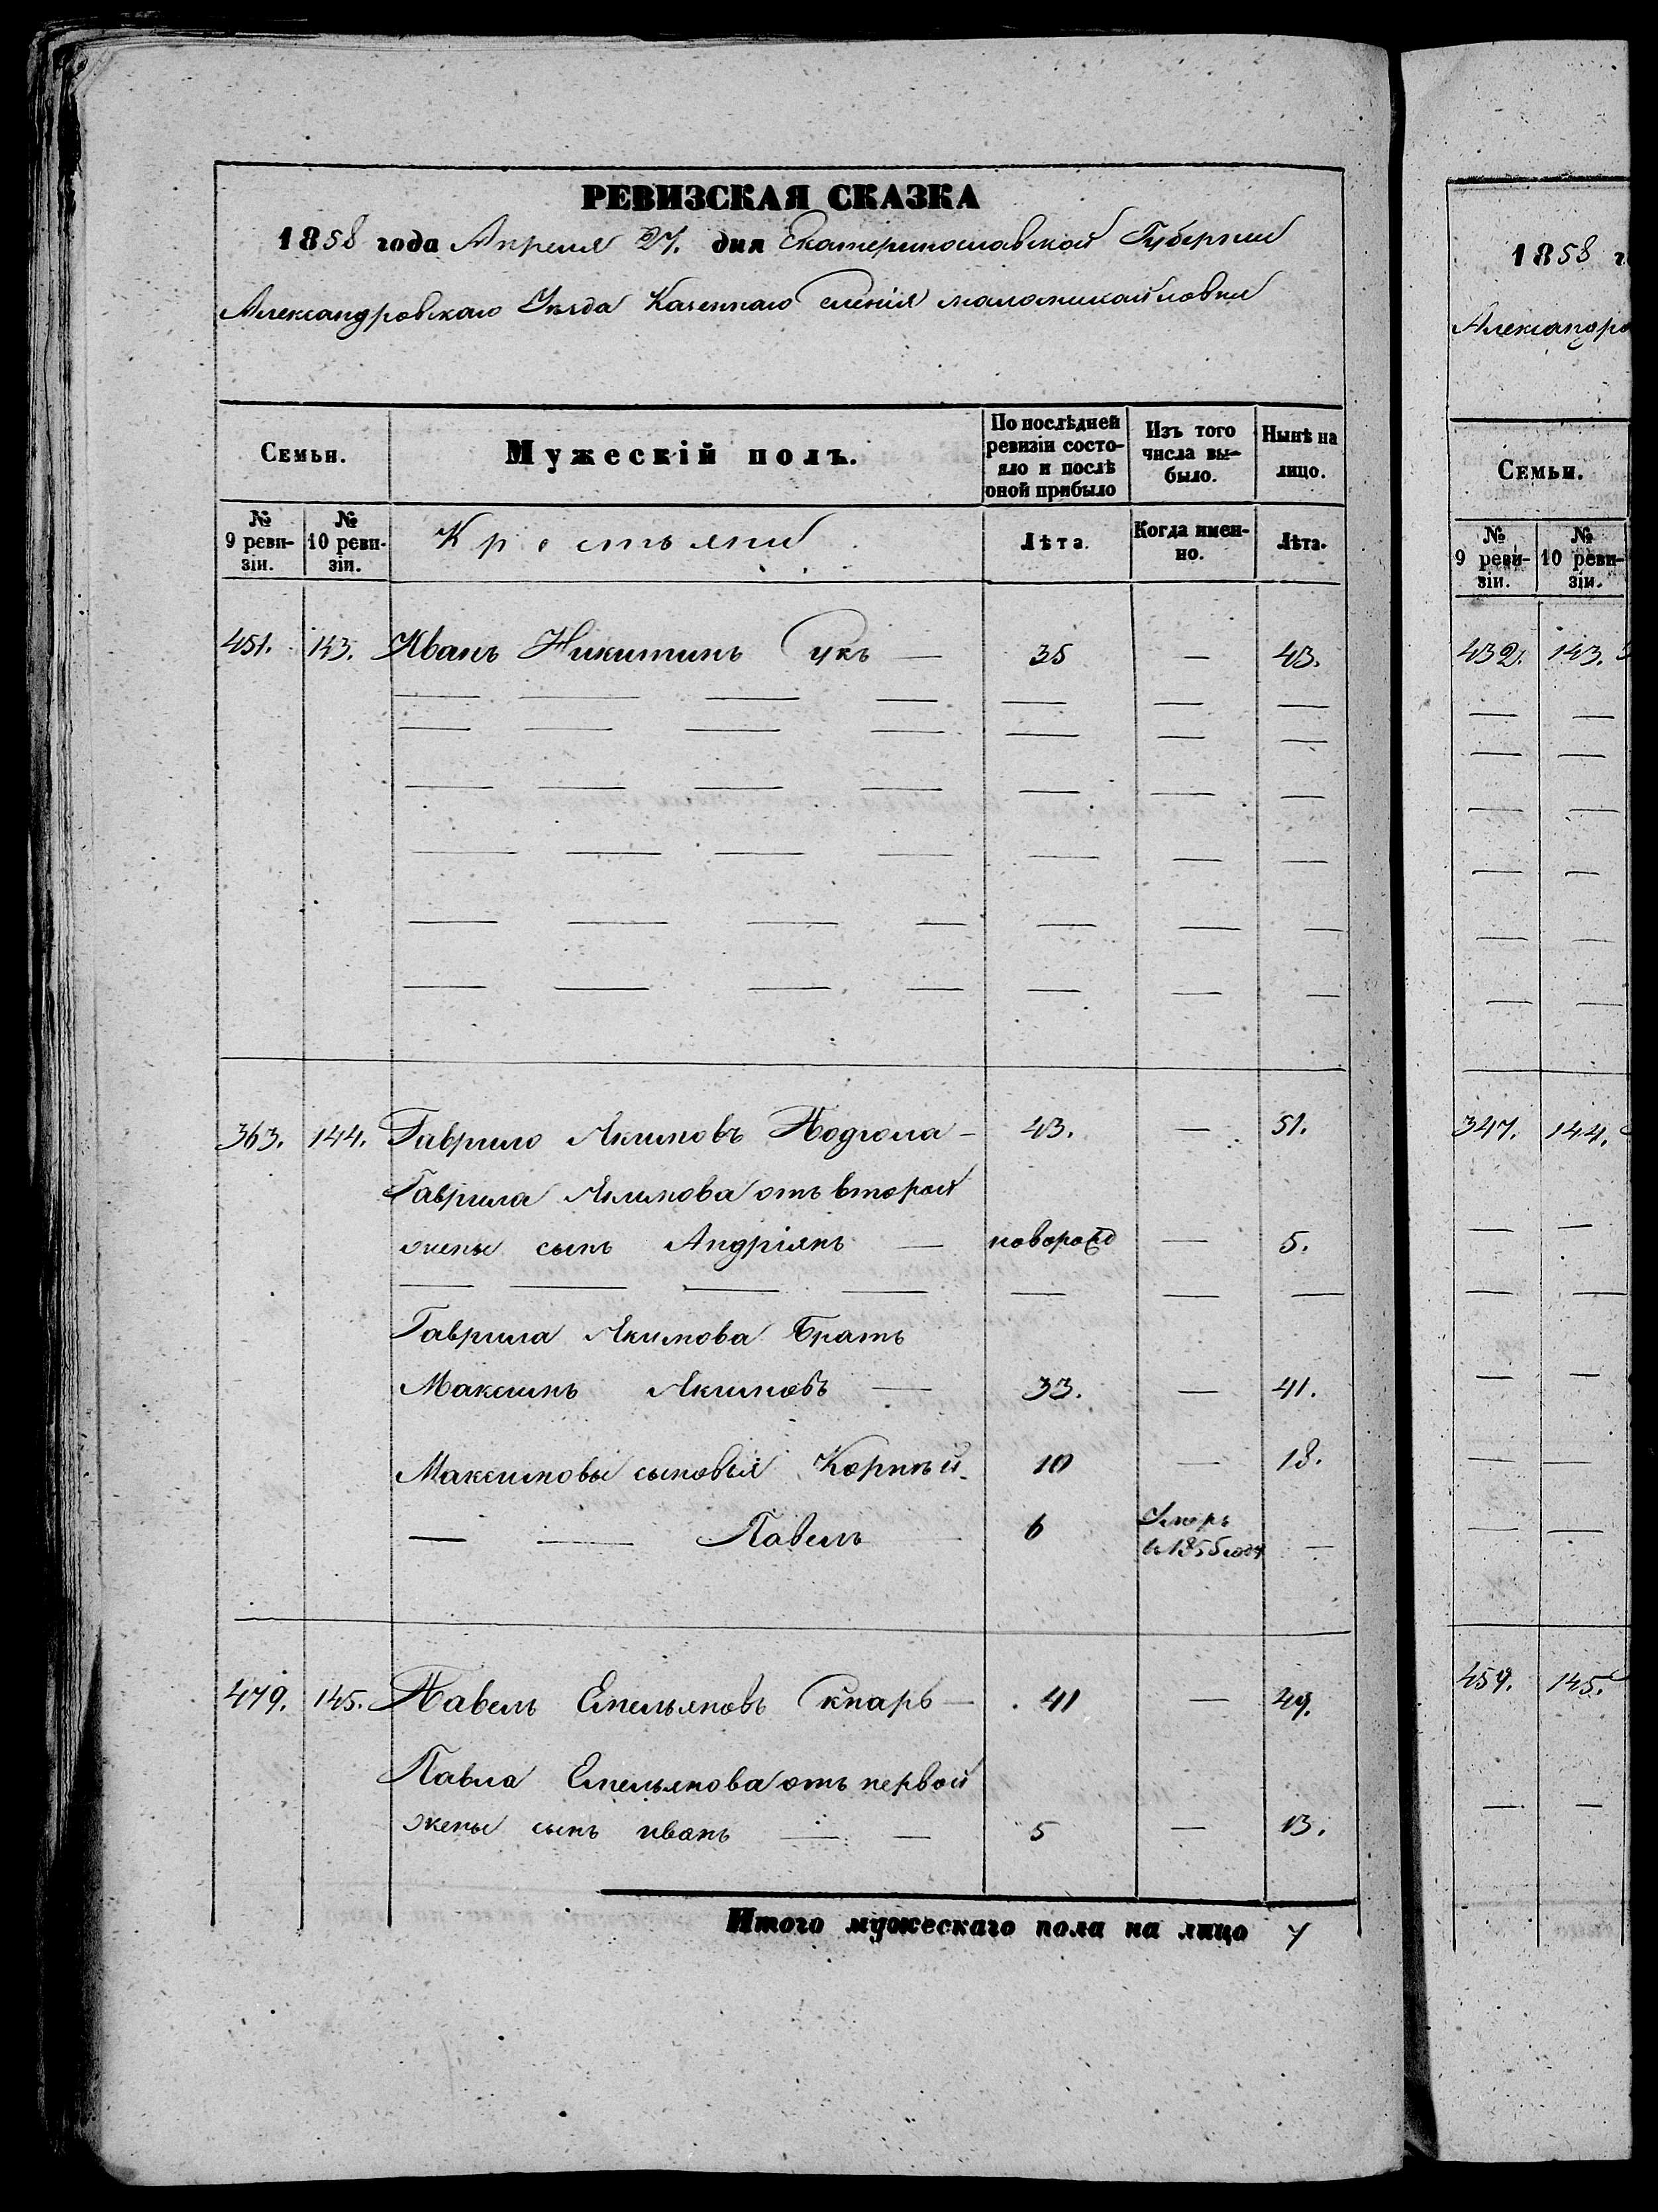 РЕВИЗСКАЯ СКАЗКА
1858 года Апреля 27. дня Екатеринославской Губерніи
Александровскаго Уѣзда Казеннаго селенія маломихайловки
Семьи.
Мужескій полъ.
По послѣдней ревизіи состояло и послѣ оной прибыло
Изъ того числа выбыло.
Нынѣ на лицо.
№ 9 ревизіи.
№ 10 ревизіи.
Крестьяни
Лѣта.
Когда именно.
Лѣта.
451. 143. Иванъ Никитинъ Сукъ — 35 — 43.
363. 144. Гаврило Якимовъ Подгола — 43. — 51.
Гаврила Якимова отъ второй
жены сынъ Андріянъ — новорожд — 5.
Гаврила Якимова Братъ
Максимъ Якимовъ — 33. — 41.
Максимовы сыновья Корнѣй 10 — 18.
— — Павелъ 6 Умеръ в 1855 году —
479. 145. Павелъ Емельяновъ Скнарь — 41 — 49.
Павла Емельянова отъ первой
жены сынъ иванъ — — 5 — 13.
Итого мужескаго пола на лицо 7
1858 г
Александро
Семьи.
№ 9 ревизіи.
№ 10 ревизіи.
432. 143.
347. 144.
459. 145.